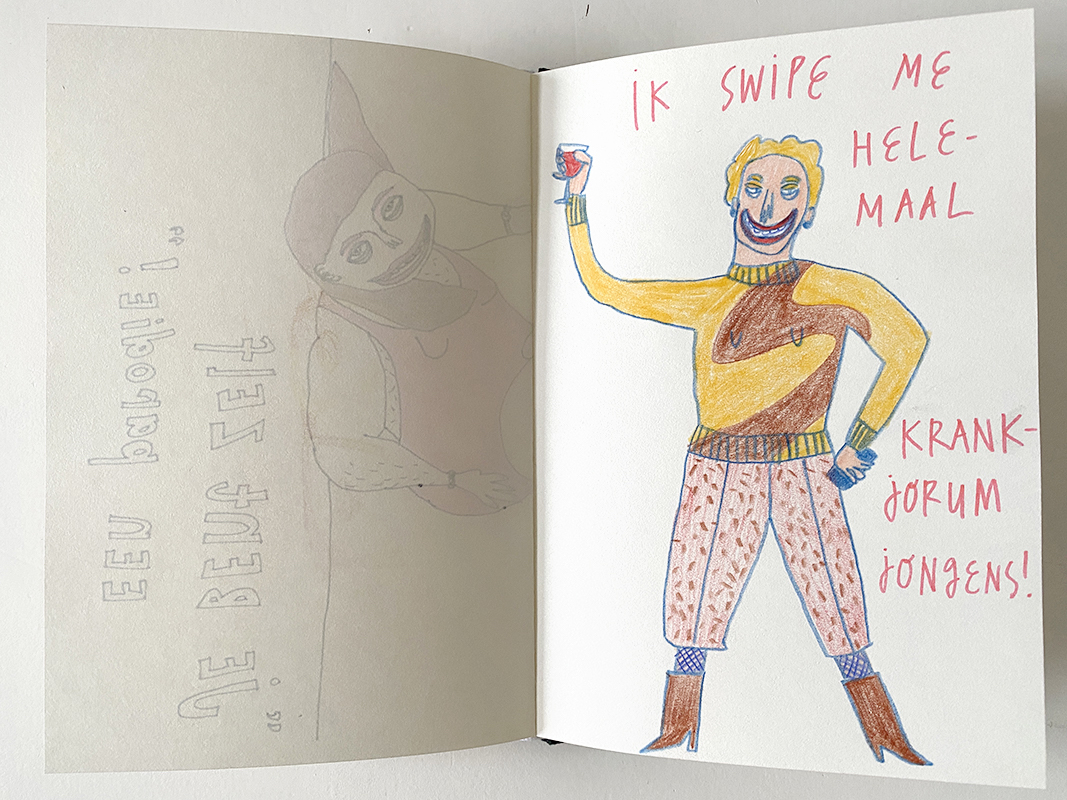 "JE BENT ZELF
EEN parodie!"
iK SWiPE ME
HELE-
MAAL
KRANK-
JORUM
JONGENS!